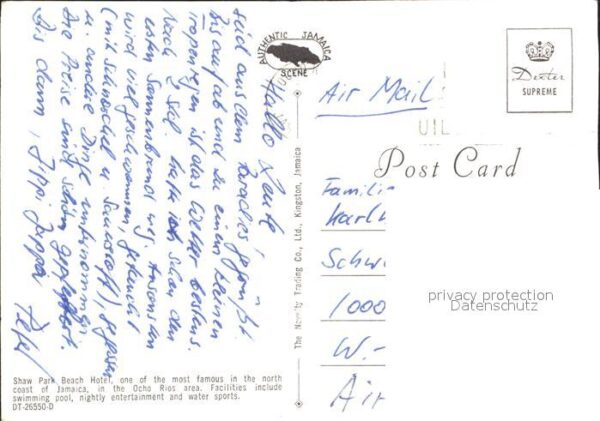 Hallo Leute!
seid aus dem Paradies gegrüßt.
Bis auf ab und zu einen kleinen
Tropenregen ist das Wetter bestens.
Nach 2 Std. hatte ich schon den
ersten Sonnenbrand weg. Ansonsten
wird viel geschwommen, getaucht
(mit Schnorchel u. Sauerstoff) gegessen
u. andere Dinge unternommen.
Die Preise sind schön gepfeffert.
Bis dann,
Peter
AUTHENTIC JAMAICA
SCENE
Air Mail
Dexter
SUPREME
Post Card
Famili
Karl
Schw
1000
W.-
Air
privacy protection
Datenschutz
The Novelty Trading Co., Ltd., Kingston, Jamaica
Shaw Park Beach Hotel, one of the most famous in the north
coast of Jamaica, in the Ocho Rios area. Facilities include
swimming pool, nightly entertainment and water sports.
DT-26550-D